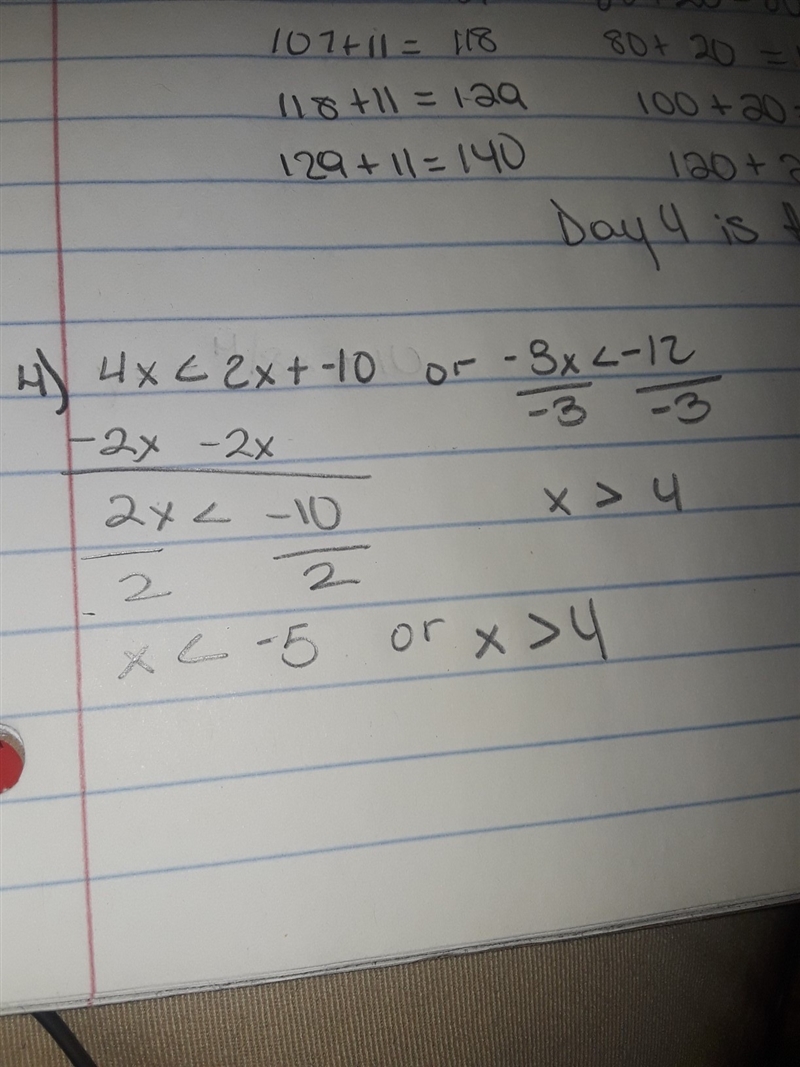 107+11 = 118 80+ 20 =
118+11 = 129 100+20
129+11=140 120+
Day 4 is
4) 4x < 2x + -10 or -3x < -12
-2x -2x -3 -3
2x < -10 x > 4
2 2
x < -5 or x > 4